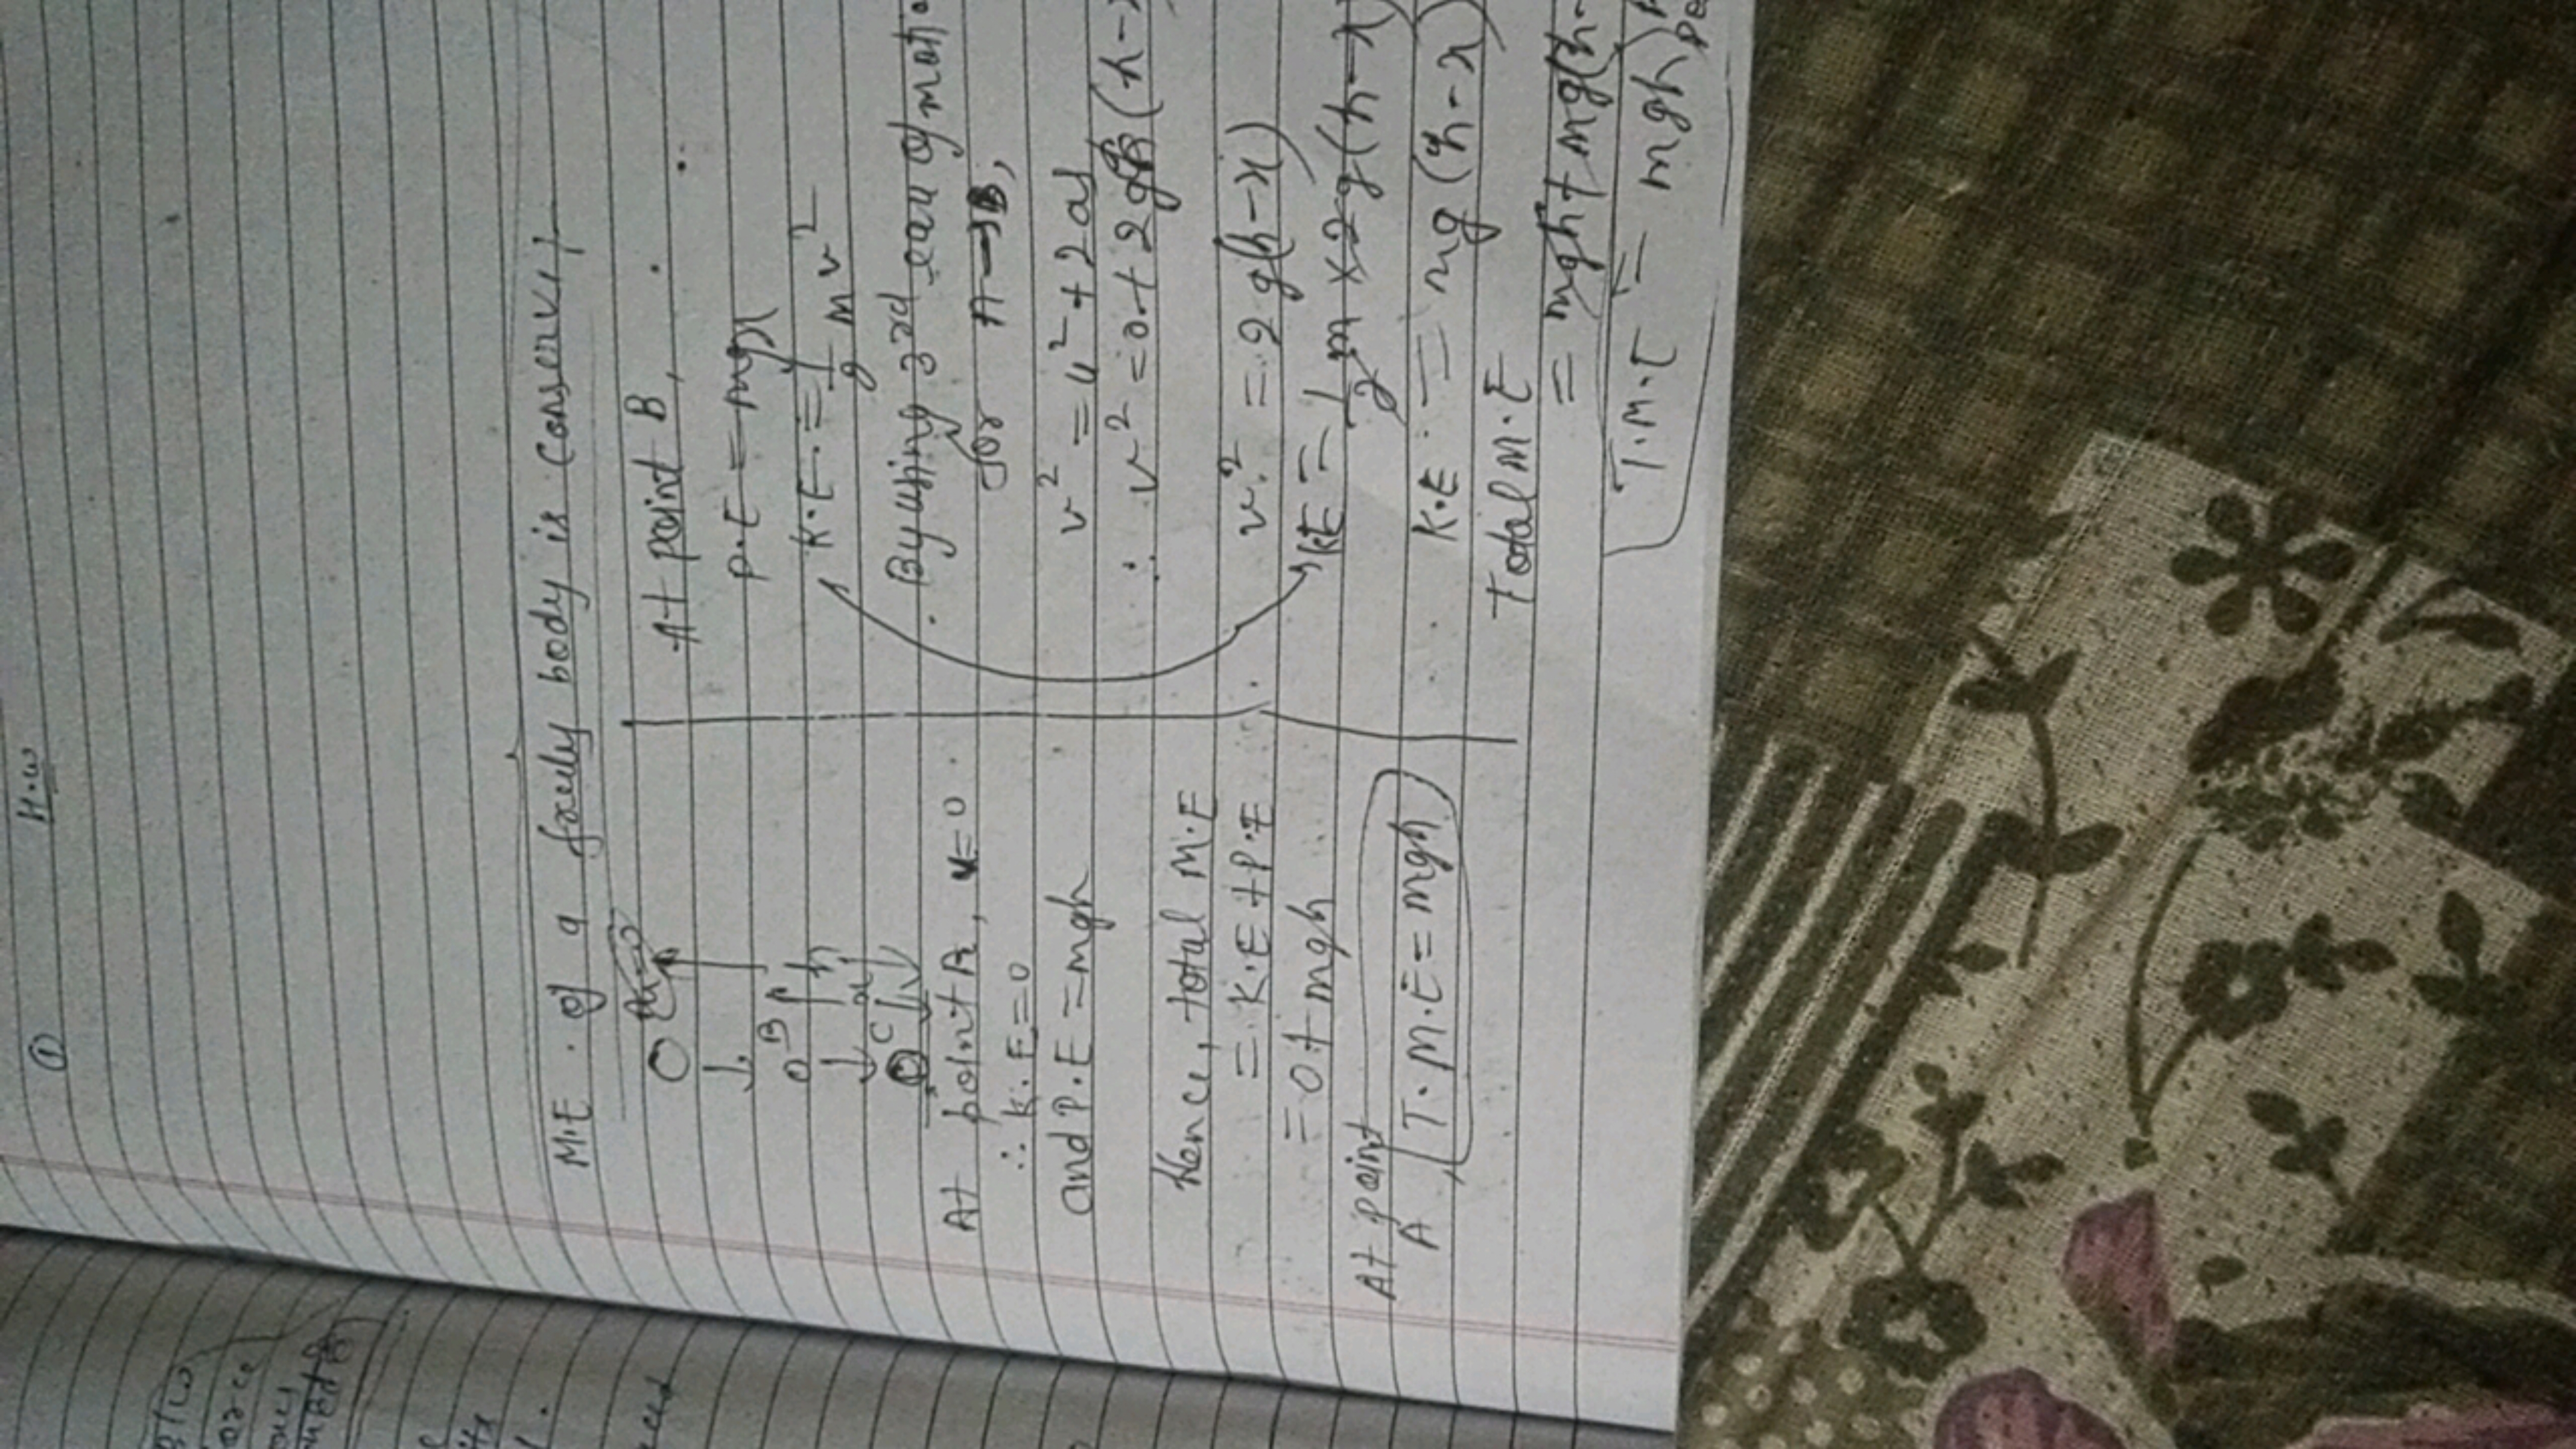 ① H.W
M.E. of a freely body is conserv
B
h
x
C
At point A, u=0
∴ K.E=0
and P.E=mgh
Hence, total M.E
= K.E+P.E
=0+mgh
At point
A
T.M.E=mgh
At point B,
P.E=mgx
K.E.=1/2 mv²
By using 3rd eqn of motio
for A→B,
v²=u²+2as
∴ v²=0+2g(h-x
v²=2g(h-x)
KE=1/2 m×2g(h-x)
K.E=mg(h-x)
Total M.E
=mgh+mg(h-
T.M.E=mgh